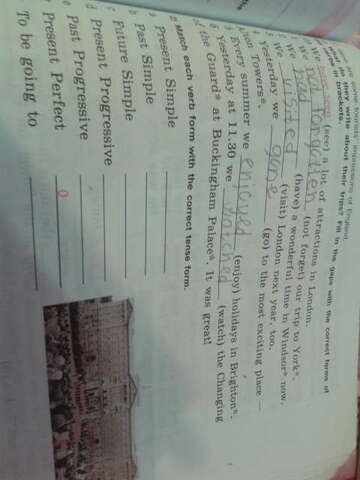 impressions of England.
do they write about their trips? Fill in the gaps with the correct forms of
brackets.
We (see) a lot of attractions in London.
We not forgoten (not forget) our trip to York*.
We had (have) a wonderful time in Windsor* now.
We visited (visit) London next year, too.
Yesterday we gone (go) to the most exciting place —
Towers*.
Every summer we enjoyed (enjoy) holidays in Brighton*.
Yesterday at 11.30 we watched (watch) the Changing
of the Guard* at Buckingham Palace*. It was great!
2 Match each verb form with the correct tense form.
Present Simple
b Past Simple
c Future Simple
d Present Progressive
e Past Progressive
Present Perfect
To be going to